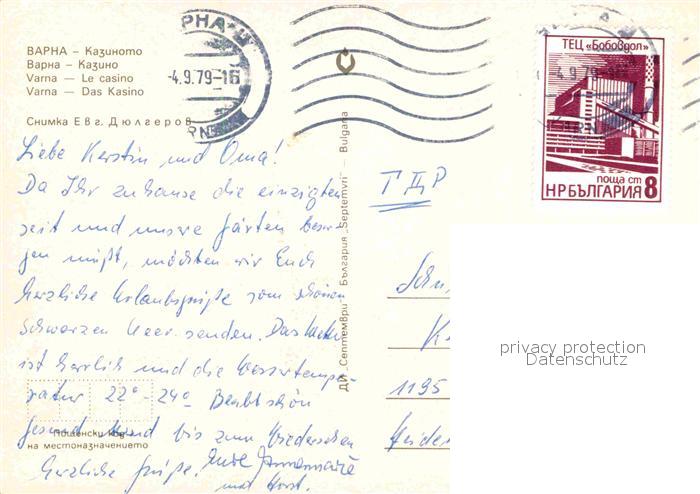 ВАРНА – Казиното
Варна – Казино
Varna — Le casino
Varna — Das Kasino
Снимка Евг. Дюлгеров
Liebe Kerstin und Oma!
Da Ihr zuhause die einzigten
seid und unsre Gärten besor-
gen müßt, möchten wir Euch
herzliche Urlaubsgrüße vom schönen
Schwarzen Meer senden. Das Wetter
ist herrlich und die Wassertempe-
ratur 22° - 24°. Bleibt schön
gesund und bis zum Wiedersehen
herzliche Grüße. Eure Annemarie
und Horst.
Пощенски код
на местоназначението
ДП „Септември" — България „Septemvri" — Bulgaria
-4.9.79-16
4.9.79-16
ТЕЦ «Бобовдол»
поща ст
НРБЪЛГАРИЯ 8
ГДР
1195
privacy protection
Datenschutz